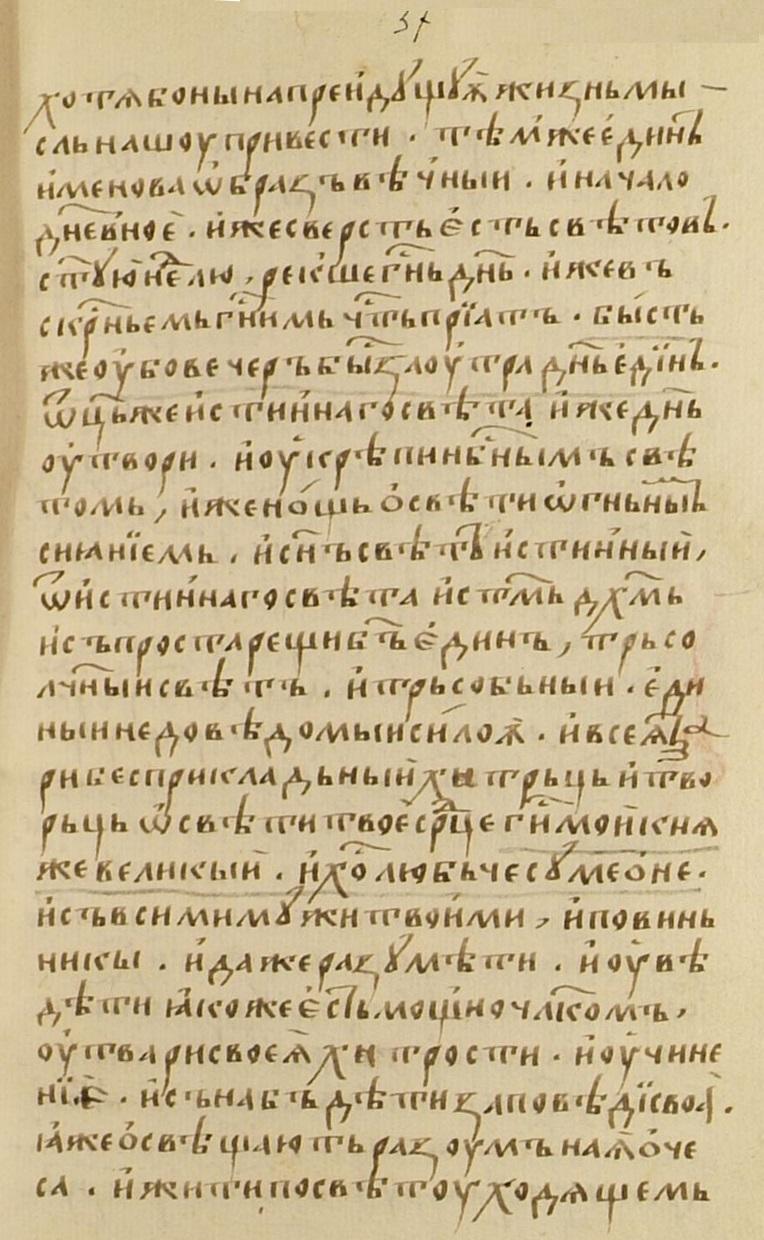 37
хотѧ бо ны на прейдꙋщꙋѧ҆ жизнь мы
сль нашоу привести . тѣм̾же є҆динъ
и҆менова ѡ҆бразъ вѣч̾ный . и҆ начало
дневноѐ . и҆же сверсть є҆сть свѣтовъ .
стꙋю нл҃ю , рек̾ше гн҃ь дн҃ь . и҆же въ
скрн҃ьемь гн҃имь чт҃ь прїатъ . бы́сть
же оу҆бо вечеръ бы́ заоу҆тра дн҃ь є҆ди́нъ .
ѿц҃ь же и҆стин̾наго свѣта , и҆же дн҃ь
оу҆твори . и҆ оу҆крѣпи нбн҃ымъ свѣ
томь , и҆же но́щь ѻ҆свѣти ѡ҆гньны̏мь
сиꙗнїемь . и҆ сн҃ъ свѣтъ и҆стин̾ный ,
ѿ и҆стин̾наго свѣта и҆ ст҃мь дх҃мь
и҆ съпроста рещи бг҃ъ є҆динъ , трьсо
лчн҃ыи свѣтъ . и҆ трьсобьныи . є҆ди
ныи недовѣдомыи си́лоѧ . и҆ всеѧ҆ тва
ри бесприкладьный хытрьць и҆ тво
рьць ѡ҆свѣти твое̏ срд҃це ги҃ мой кнѧ
же великый . и҆ хо҃любьче сꙋмео́не .
и҆ съ всими мꙋжи твои́ми , и҆ повинь
никы . и҆ даже разꙋмѣти . и҆ оу҆вѣ
дѣти ꙗ҆коже є҆сть мощ̾но чл҃комъ ,
оу҆ твари своеѧ̀ хытрости . и҆ оу҆чине
нїе . и҆ сънабъдѣти заповѣди своѧ̀ .
ꙗ҆же ѻ҆свѣщають разоумънаѧ̀ ѻ҆че
са . и҆ жити по свѣтоу ходѧщемь